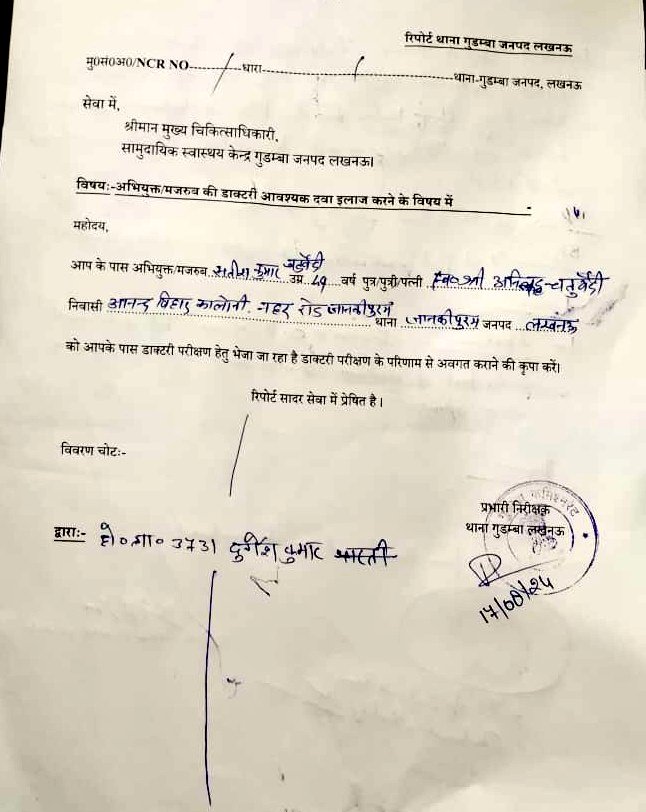 रिपोर्ट थाना गुडम्बा जनपद लखनऊ
मु0सं0अ0/NCR NO-----------/-धारा---------------------/------------------थाना-गुडम्बा जनपद, लखनऊ
सेवा में,
श्रीमान मुख्य चिकित्साधिकारी,
सामुदायिक स्वास्थय केन्द्र गुडम्बा जनपद लखनऊ।
विषयः-अभियुक्त/मजरुब की डाक्टरी आवश्यक दवा इलाज करने के विषय में
महोदय,
आप के पास अभियुक्त/मजरुब सतीश कुमार चतुर्वेदी उम्र 49 वर्ष पुत्र/पुत्री/पत्नी स्व० श्री अनिरुद्ध चतुर्वेदी
निवासी आनन्द विहार कालोनी नहर रोड जानकीपुरम थाना जानकीपुरम जनपद लखनऊ
को आपके पास डाक्टरी परीक्षण हेतु भेजा जा रहा है डाक्टरी परीक्षण के परिणाम से अवगत कराने की कृपा करें।
रिपोर्ट सादर सेवा में प्रेषित है।
विवरण चोटः-
प्रभारी निरीक्षक
थाना गुडम्बा लखनऊ
द्वाराः- हो०गा० 3731 दुर्गेश कुमार भारती
17/08/24